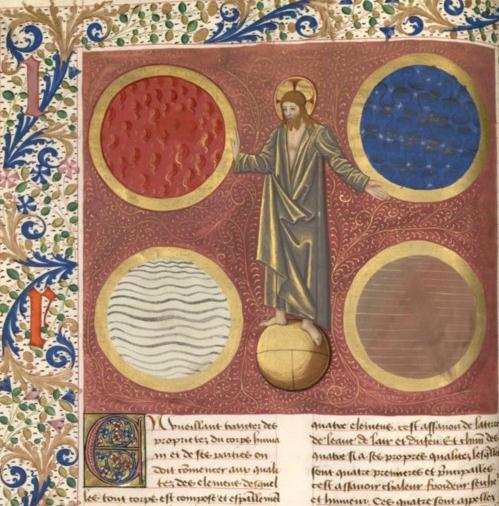 I
r
EN vueillant traiter des
proprietez du corps huma
in et de ses parties on
doit cōmencer aux quali
tez des elemens desquel
les tout corps est compose et
quatre elemens. cest assauoir de la terre
de leaue de lair et du feu. et chūn des
quatre si a ses propres qualites
sont quatre premieres et principalles
cest assauoir chaleur froideur seiche
et humeur. Ces quatre sont appellez